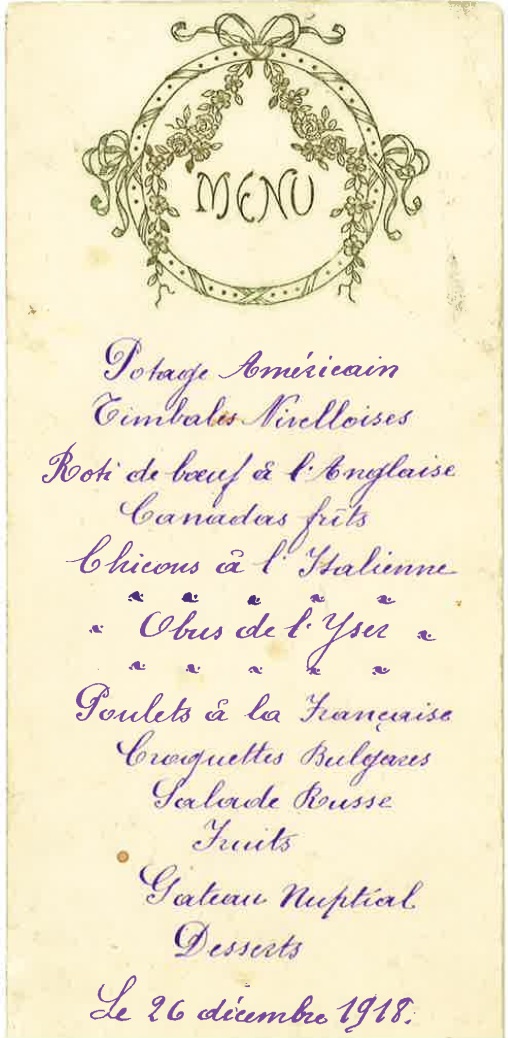 MENU
Potage Américain
Timbales Nivelloises
Roti de bœuf à l'Anglaise
Canadas frits
Chicons à l'Italienne
Obus de l'Yser
Poulets à la Française
Croquettes Bulgares
Salade Russe
Fruits
Gateau Nuptial
Desserts
Le 26 décembre 1918.